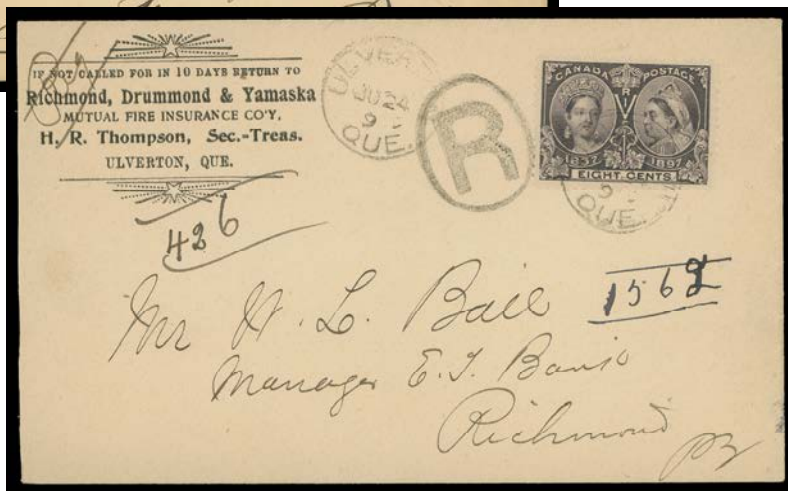 Reg
IF NOT CALLED FOR IN 10 DAYS RETURN TO
Richmond, Drummond & Yamaska
MUTUAL FIRE INSURANCE CO'Y,
H. R. Thompson, Sec.-Treas.
ULVERTON, QUE.
426
JU 24
9
QUE.
R
CANADA POSTAGE
V R I
1837 1897
EIGHT CENTS
9
QUE
1562
Mr H. L. Ball
Manager E.T. Bank
Richmond
PQ